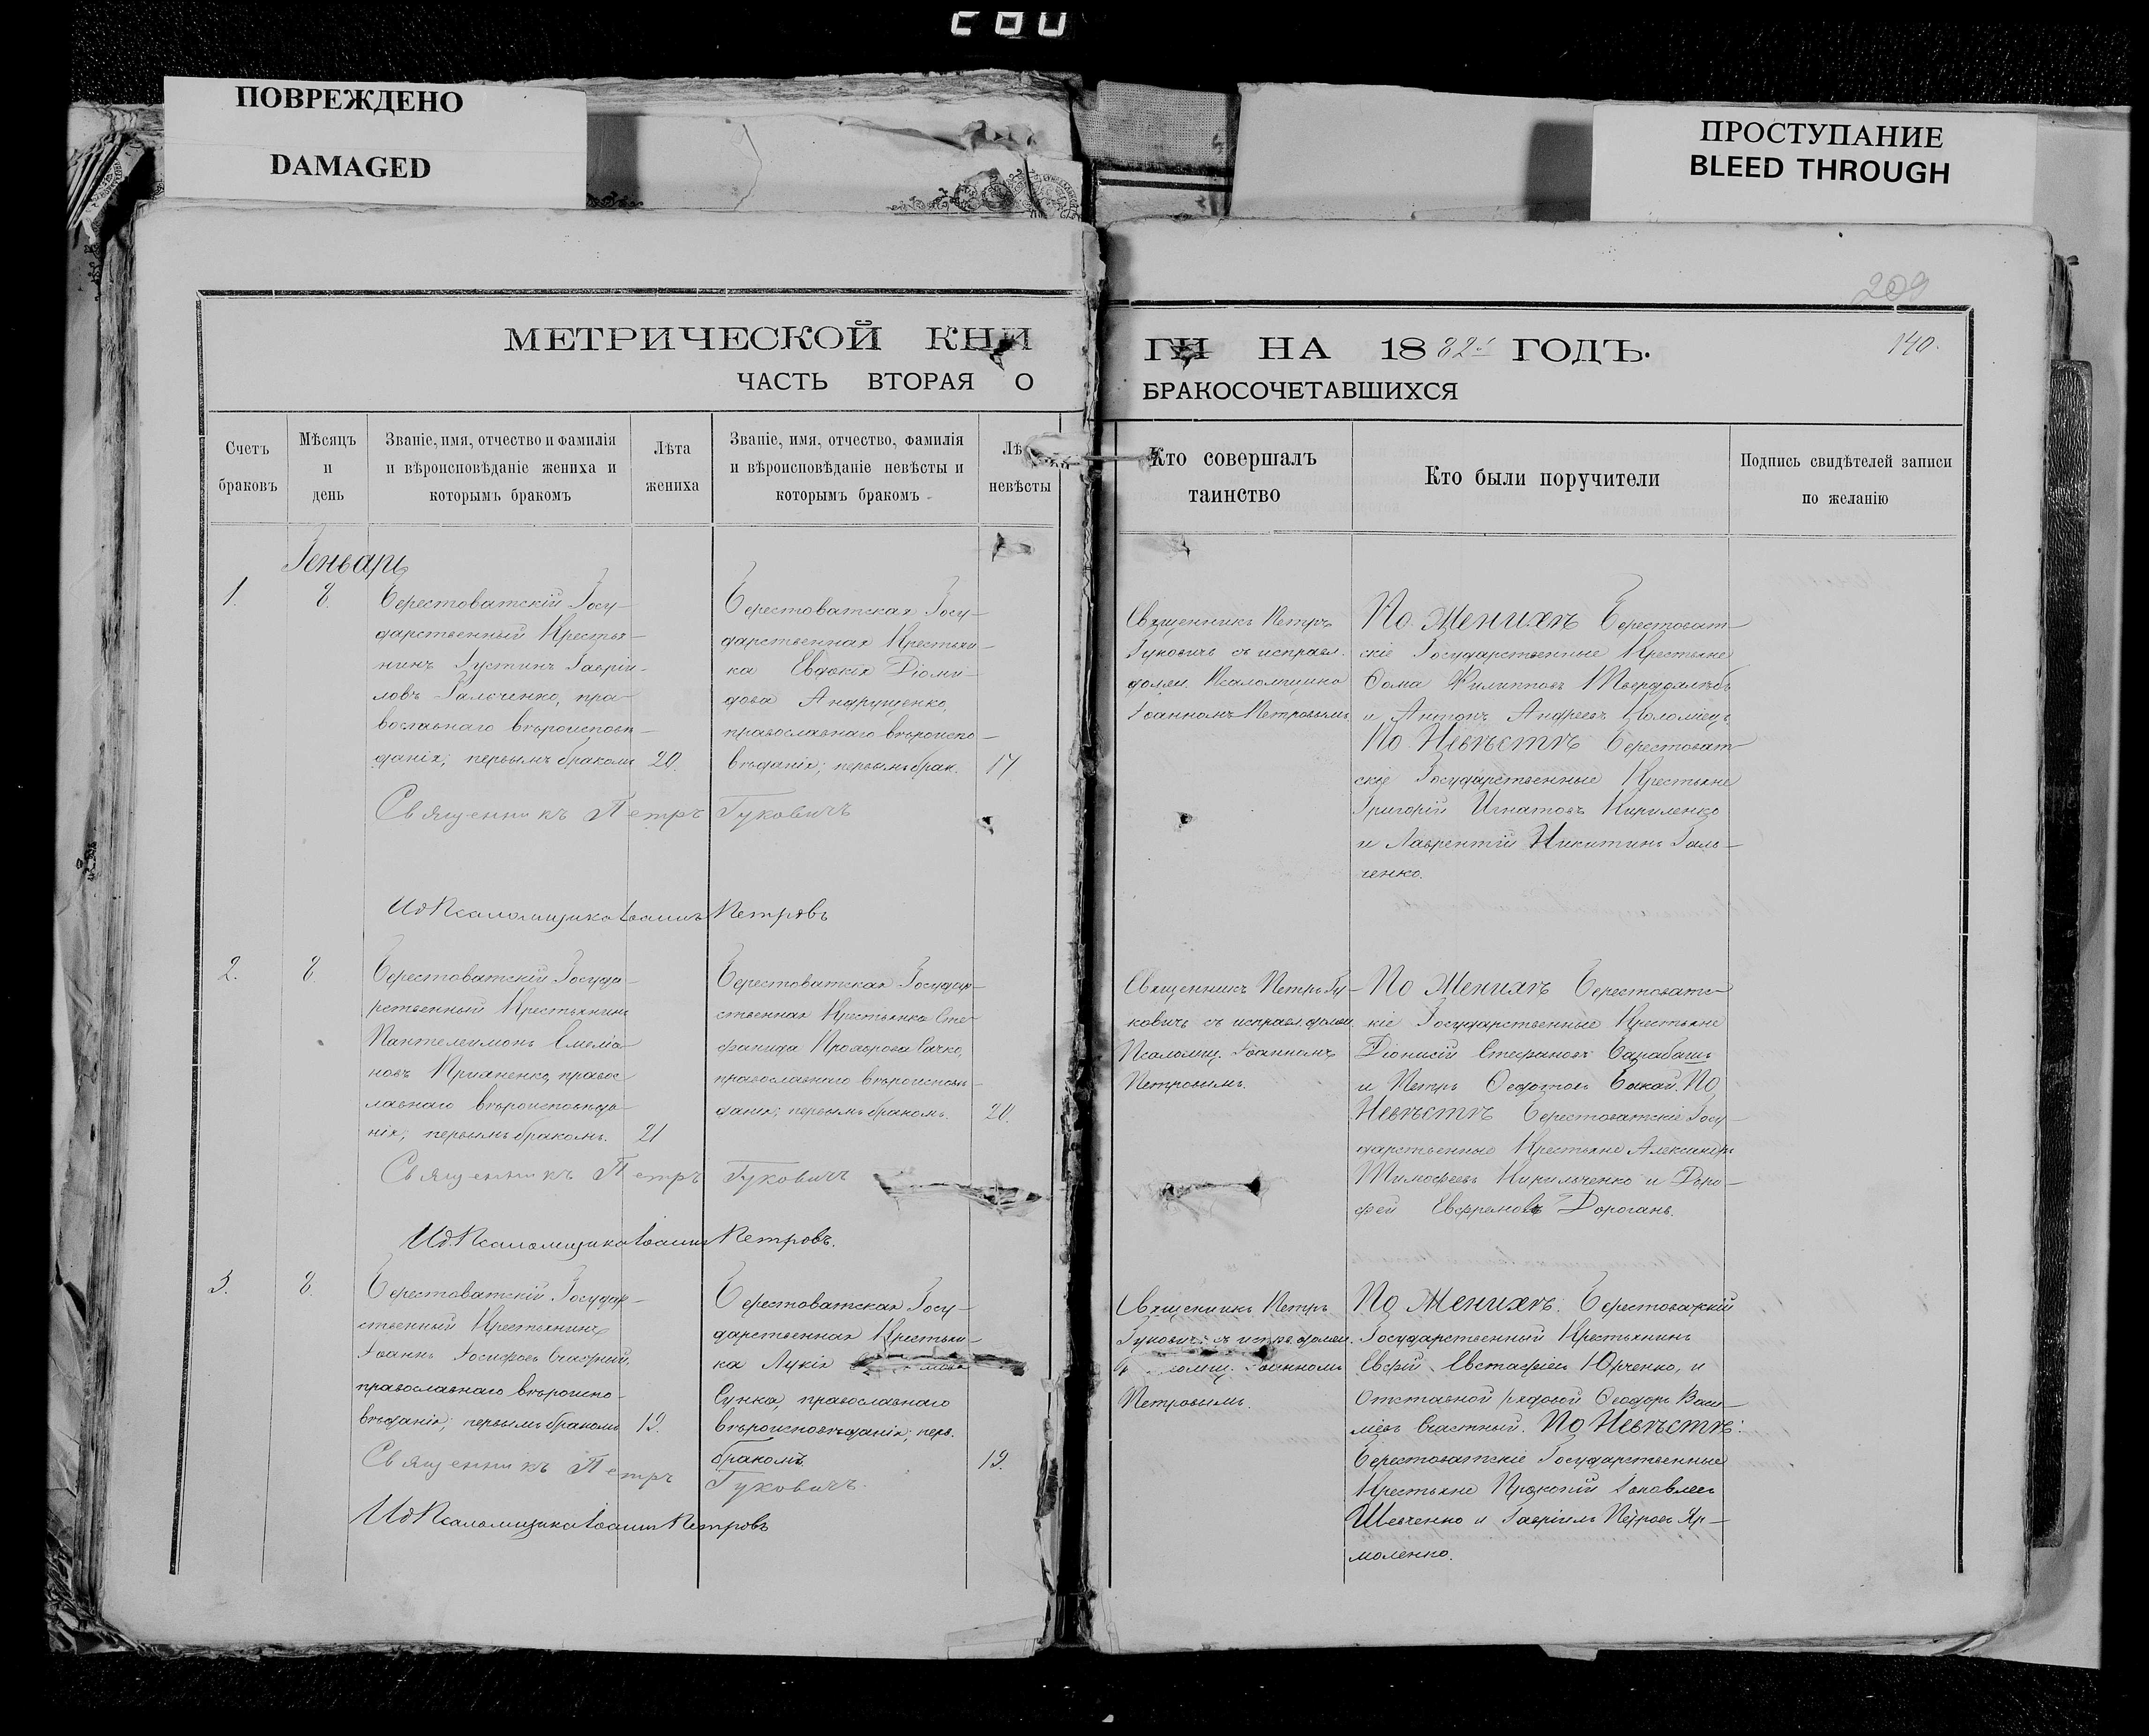 ПОВРЕЖДЕНО
DAMAGED
ПРОСТУПАНИЕ
BLEED THROUGH
209
МЕТРИЧЕСКОЙ КНИ
ГИ НА 1882й ГОДЪ.
140.
ЧАСТЬ ВТОРАЯ О
БРАКОСОЧЕТАВШИХСЯ
Счетъ
браковъ
Мѣсяцъ
и
день
Званіе, имя, отчество и фамилія
и вѣроисповѣданіе жениха и
которымъ бракомъ
Лѣта
жениха
Званіе, имя, отчество, фамилія
и вѣроисповѣданіе невѣсты и
которымъ бракомъ
Лѣ
невѣсты
Кто совершалъ
таинство
Кто были поручители
Подпись свидѣтелей записи
по желанію
Генварь
1.
8.
Берестоватскій Госу-
дарственный Крестья-
нинъ Густинъ Гавріи-
ловъ Гальченко, пра-
вославнаго вѣроисповѣ-
данія; первымъ бракомъ
20.
Берестоватская Госу-
дарственная Крестьян-
ка Евдокія Діоми-
дова Андрущенко,
православнаго вѣроиспо-
вѣданія; первымъ брак.
17
Священникъ Петръ
Гуковичъ съ исправл.
должн. Псаломщика
Іоанномъ Петровымъ
По Женихѣ Берестоват-
скіе Государственные Крестьяне
Ѳома Филипповъ Твердохлѣбъ
и Антонъ Андреевъ Коломіецъ
По Невѣстѣ Берестоват-
скіе Государственные Крестьяне
Григорій Игнатовъ Кириленко
и Лаврентій Никитинъ Галь-
ченко.
Священникъ Петръ Гуковичъ
Ид Псаломщика Іоаннъ Петровъ
2.
8.
Берестоватскій Госуда-
рственный Крестьянинъ
Пантелеимонъ Емеліа-
новъ православ
лавнаго вѣроисповѣда-
нія; первымъ бракомъ.
21
Берестоватская Государ-
ственная Крестьянка Сте-
фанида Прохорова Сачко,
православнаго вѣроисповѣ-
данія; первымъ бракомъ.
20.
Священникъ Петръ Гу-
ковичъ съ исправл. должн.
Псаломщ. Іоанномъ
Петровымъ.
По Женихѣ Берестоватс-
кіе Государственные Крестьяне
Діонисій Стефановъ Барабашъ
и Петръ Ѳедотовъ Бакай. По
Невѣстѣ Берестоватскіе Госу-
дарственные Крестьяне Александръ
Тимофеевъ Кирильченко и Доро-
фей Евфремовъ Дорогань.
Священникъ Петръ Гуковичъ
Ид. Псаломщика Іоаннъ Петровъ.
3.
8.
Берестоватскій Государ-
ственный Крестьянинъ
Іоаннъ Іосифовъ Счастный,
православнаго вѣроиспо-
вѣданія; первымъ бракомъ
19.
Берестоватская Госу-
дарственная Крестьян-
ка Лукія
Сунка, православнаго
вѣроисповѣданія; перв.
бракомъ
19.
Священникъ Петръ
Гуковичъ съ испр. должн.
Іоанномъ
Петровымъ.
По Женихѣ: Берестоватскій
Государственный Крестьянинъ
Евфій Евстафіевъ Юрченко, и
Отставной рядовой Ѳеодоръ Васи-
ліевъ Счастный. По Невѣстѣ:
Берестоватскіе Государственные
Крестьяне Прокопій Іаковлевъ
Шевченко и Гавріилъ Петровъ Яр-
моленко.
Священникъ Петръ Гуковичъ.
Ид Псаломщика Іоаннъ Петровъ